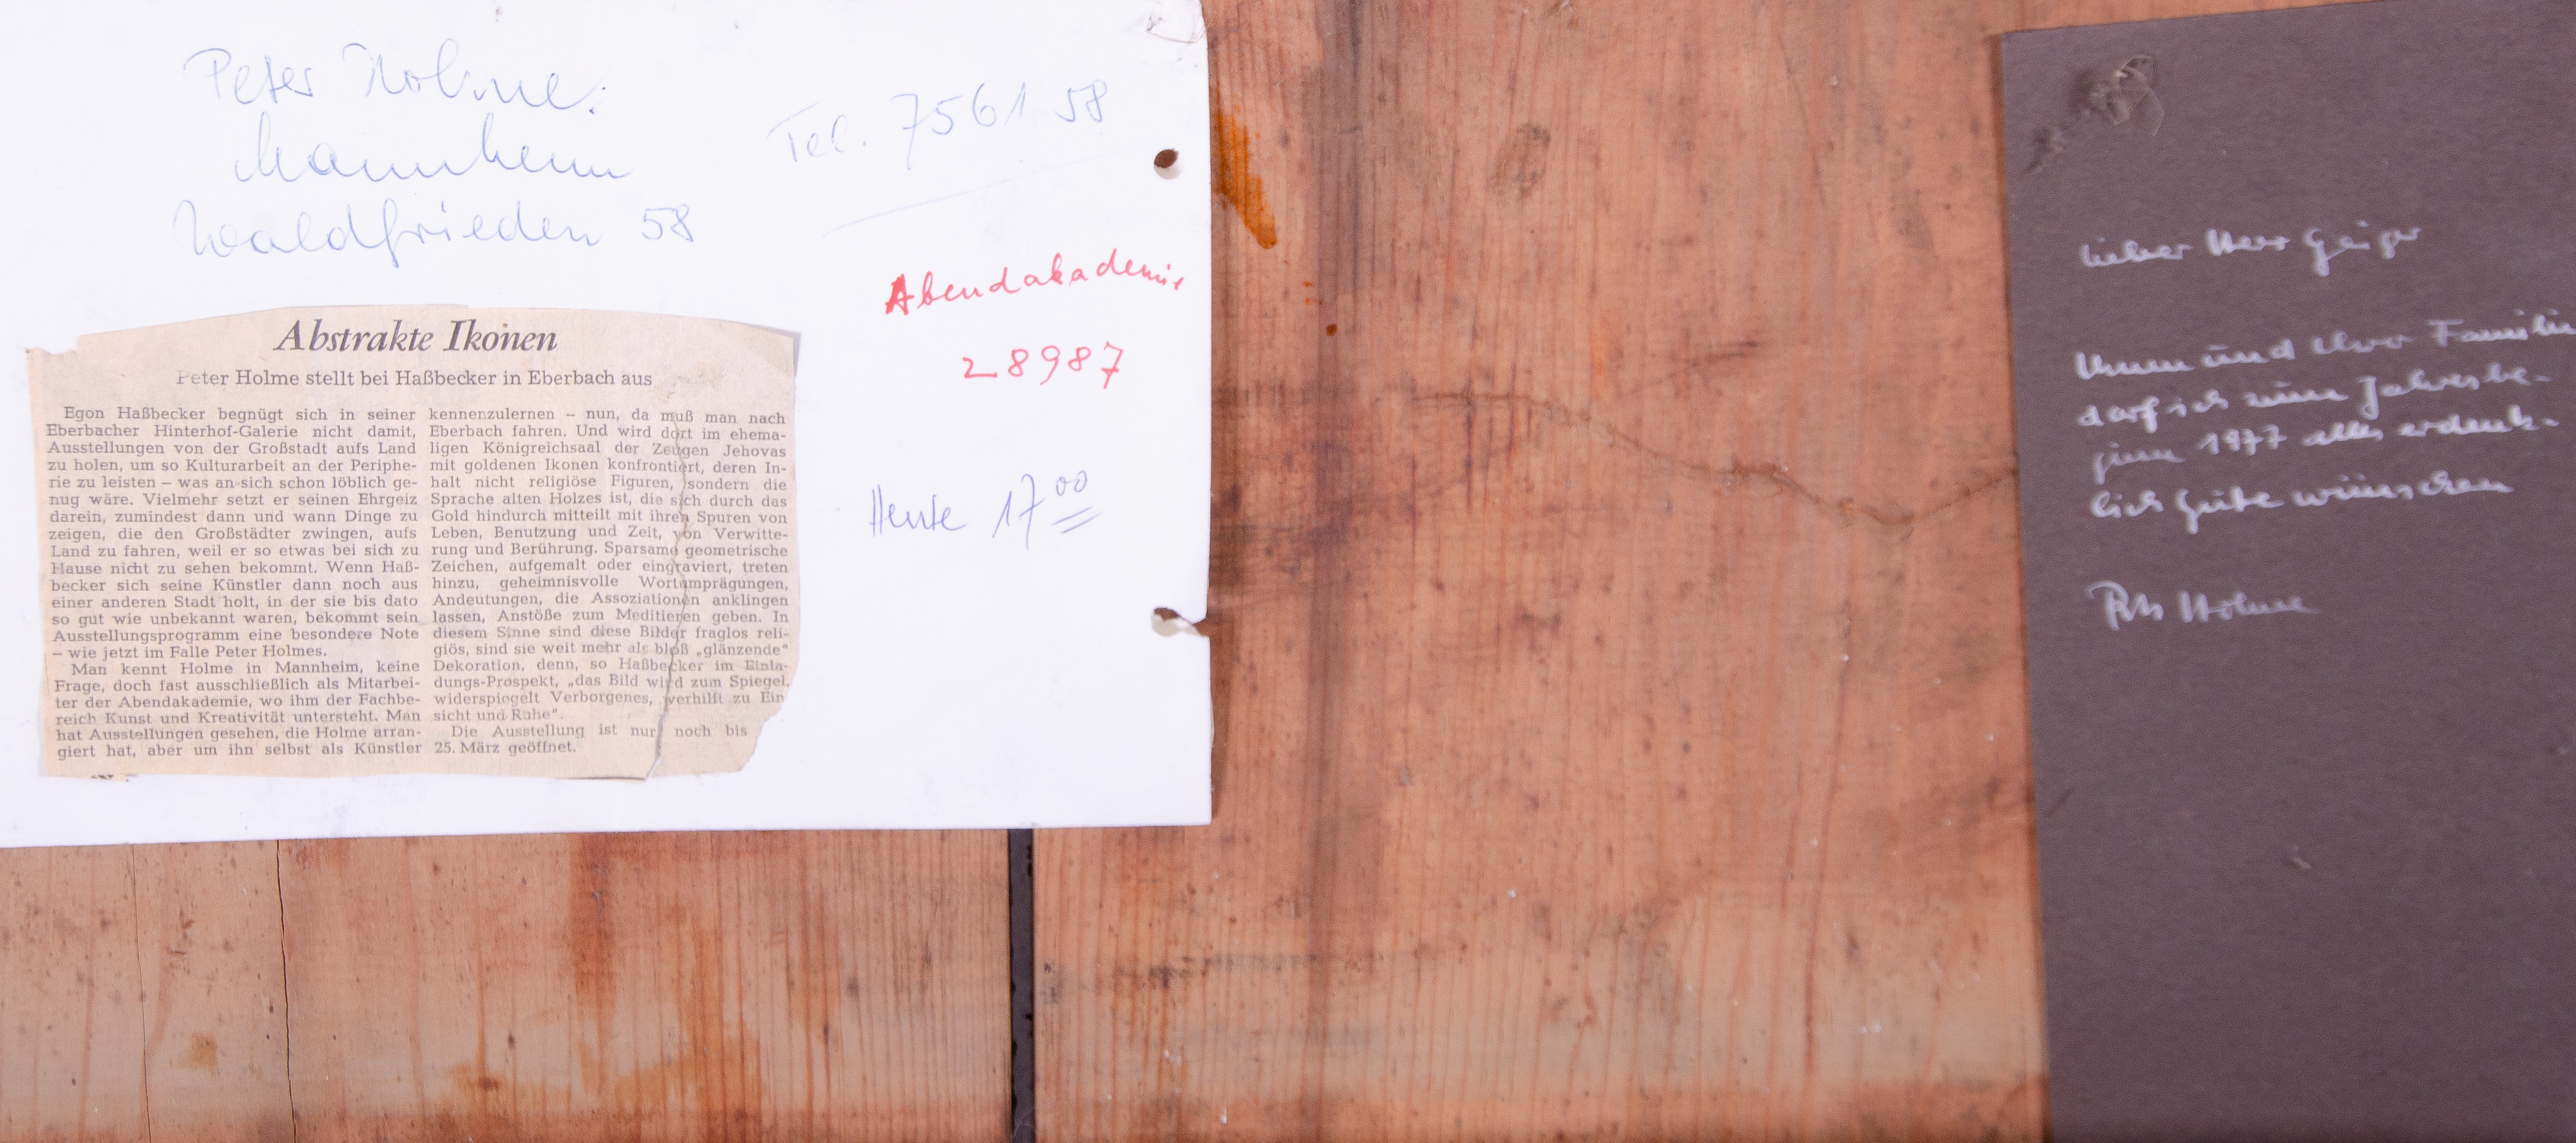 Peter Holme.
Mannheim
Waldfrieden 58
Tel. 7561 58
Abendakademie
28987
Heute 17 00
Abstrakte Ikonen
Peter Holme stellt bei Haßbecker in Eberbach aus
Egon Haßbecker begnügt sich in seiner
Eberbacher Hinterhof-Galerie nicht damit,
Ausstellungen von der Großstadt aufs Land
zu holen, um so Kulturarbeit an der Periphe-
rie zu leisten – was an sich schon löblich ge-
nug wäre. Vielmehr setzt er seinen Ehrgeiz
darein, zumindest dann und wann Dinge zu
zeigen, die den Großstädter zwingen, aufs
Land zu fahren, weil er so etwas bei sich zu
Hause nicht zu sehen bekommt. Wenn Haß-
becker sich seine Künstler dann noch aus
einer anderen Stadt holt, in der sie bis dato
so gut wie unbekannt waren, bekommt sein
Ausstellungsprogramm eine besondere Note
– wie jetzt im Falle Peter Holmes.
Man kennt Holme in Mannheim, keine
Frage, doch fast ausschließlich als Mitarbei-
ter der Abendakademie, wo ihm der Fachbe-
reich Kunst und Kreativität untersteht. Man
hat Ausstellungen gesehen, die Holme arran-
giert hat, aber um ihn selbst als Künstler
kennenzulernen – nun, da muß man nach
Eberbach fahren. Und wird dort im ehema-
ligen Königreichsaal der Zeugen Jehovas
mit goldenen Ikonen konfrontiert, deren In-
halt nicht religiöse Figuren, sondern die
Sprache alten Holzes ist, die sich durch das
Gold hindurch mitteilt mit ihren Spuren von
Leben, Benutzung und Zeit, von Verwitte-
rung und Berührung. Sparsame geometrische
Zeichen, aufgemalt oder eingraviert, treten
hinzu, geheimnisvolle Wortumprägungen,
Andeutungen, die Assoziationen anklingen
lassen, Anstöße zum Meditieren geben. In
diesem Sinne sind diese Bilder fraglos reli-
giös, sind sie weit mehr als bloß „glänzende"
Dekoration, denn, so Haßbecker im Einla-
dungs-Prospekt, „das Bild wird zum Spiegel,
widerspiegelt Verborgenes, verhilft zu Ein
sicht und Ruhe".
Die Ausstellung ist nur noch bis
25. März geöffnet.
Lieber Herr Geiger
Ihnen und Ihrer Familie
darf ich zum Jahresbe-
ginn 1977 alles erdenk-
lich Gute wünschen
Peter Holme